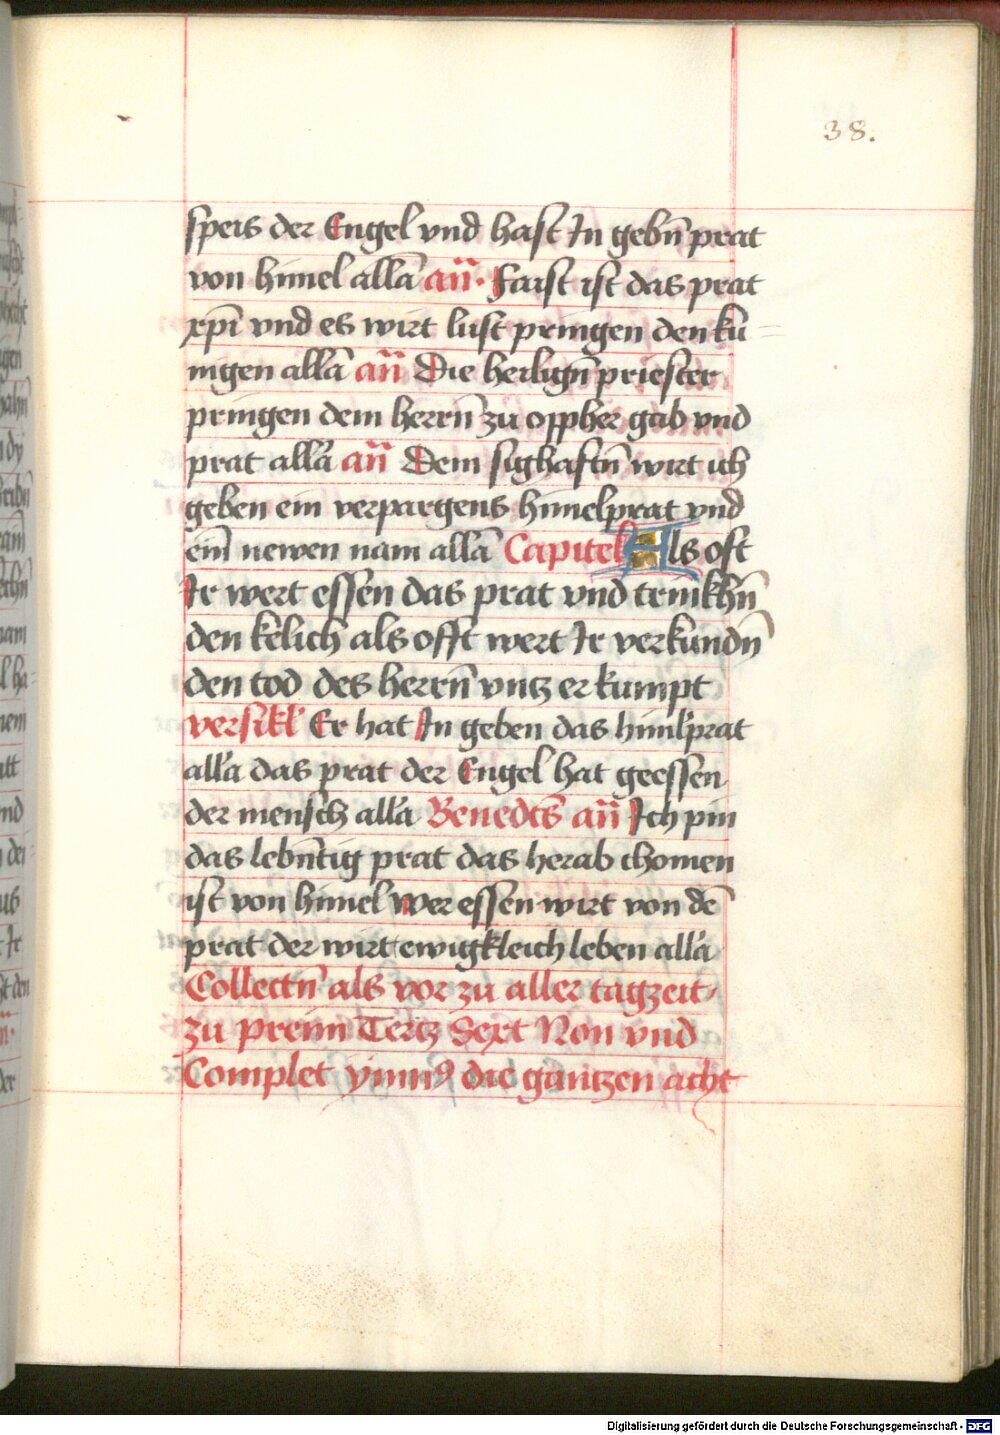 38.
speis der Engel vnd hast In gebn̄ prat
von himel allā an̄. Faist ist das prat
xp̄i vnd es wirt lust pringen den kü=
nigen allā an̄ Die heilign̄ priester
pringen dem herrn̄ zu oppher gab vnd
prat allā an̄ Dem sighaftn̄ wirt ich
geben ein verpargens himelprat vnd
ein̄ newen nam allā Capitel Als oft
Ir wert essen das prat vnd trinkhn̄
den kelich als offt wert Ir verkündn̄
den tod des herrn̄ vntz er kumpt
versikl' Er hat In geben das himl'prat
all'a das prat der Engel hat geessen
der mensch all'a Benedcs̄ an̄ Ich pin
das lebn̄tig prat das herab chomen
ist von himel wer essen wirt von dē
prat der wirt ewigkleich leben all'a
Collectn̄ als vor zu aller tagzeit
zu preim Tertz Sext Non vnd
Complet ymnꝰ die gantzen acht
Digitalisierung gefördert durch die Deutsche Forschungsgemeinschaft - DFG